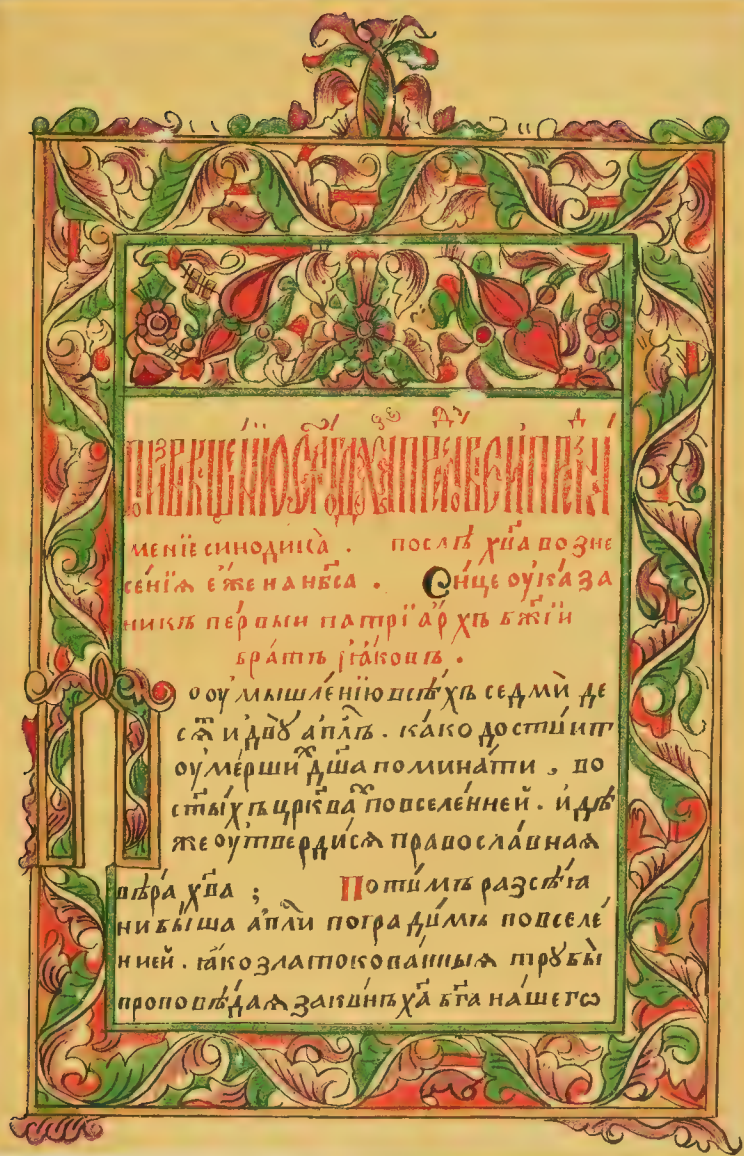 ПОИЗВѢЩЕНЇЮ СТ҃АГО ДХ҃А И
менїе синодика . послѣ хв҃а возне
се́нїѧ е́же на нб҃са . Си́це оука́за
никъ пе́рвыи патрїа́рхъ бж҃їи
бра́тъ їа́ковъ .
По оумышле́нїю всѣ́хъ седмѝ де
сѧⷮ и двꙋ̀ ап҃лъ . ка́ко досто́ит
оуме́ршиⷯ дш҃а помина́ти , во
ст҃ы́хъ црк҃ваⷯ по вселе́нней . и҆дѣ́
же оутверди́сѧ правосла́внаѧ
вѣ́ра хв҃а ; Поти́мъ разсѣ́ѧ
ни бы́ша ап҃ли по гради́мъ по вселе́
нней . ꙗ҆ко златокова́нныѧ трꙋбы̀
проповѣ́даѧ зако́нъ хв҃а бг҃а на́шегѡ